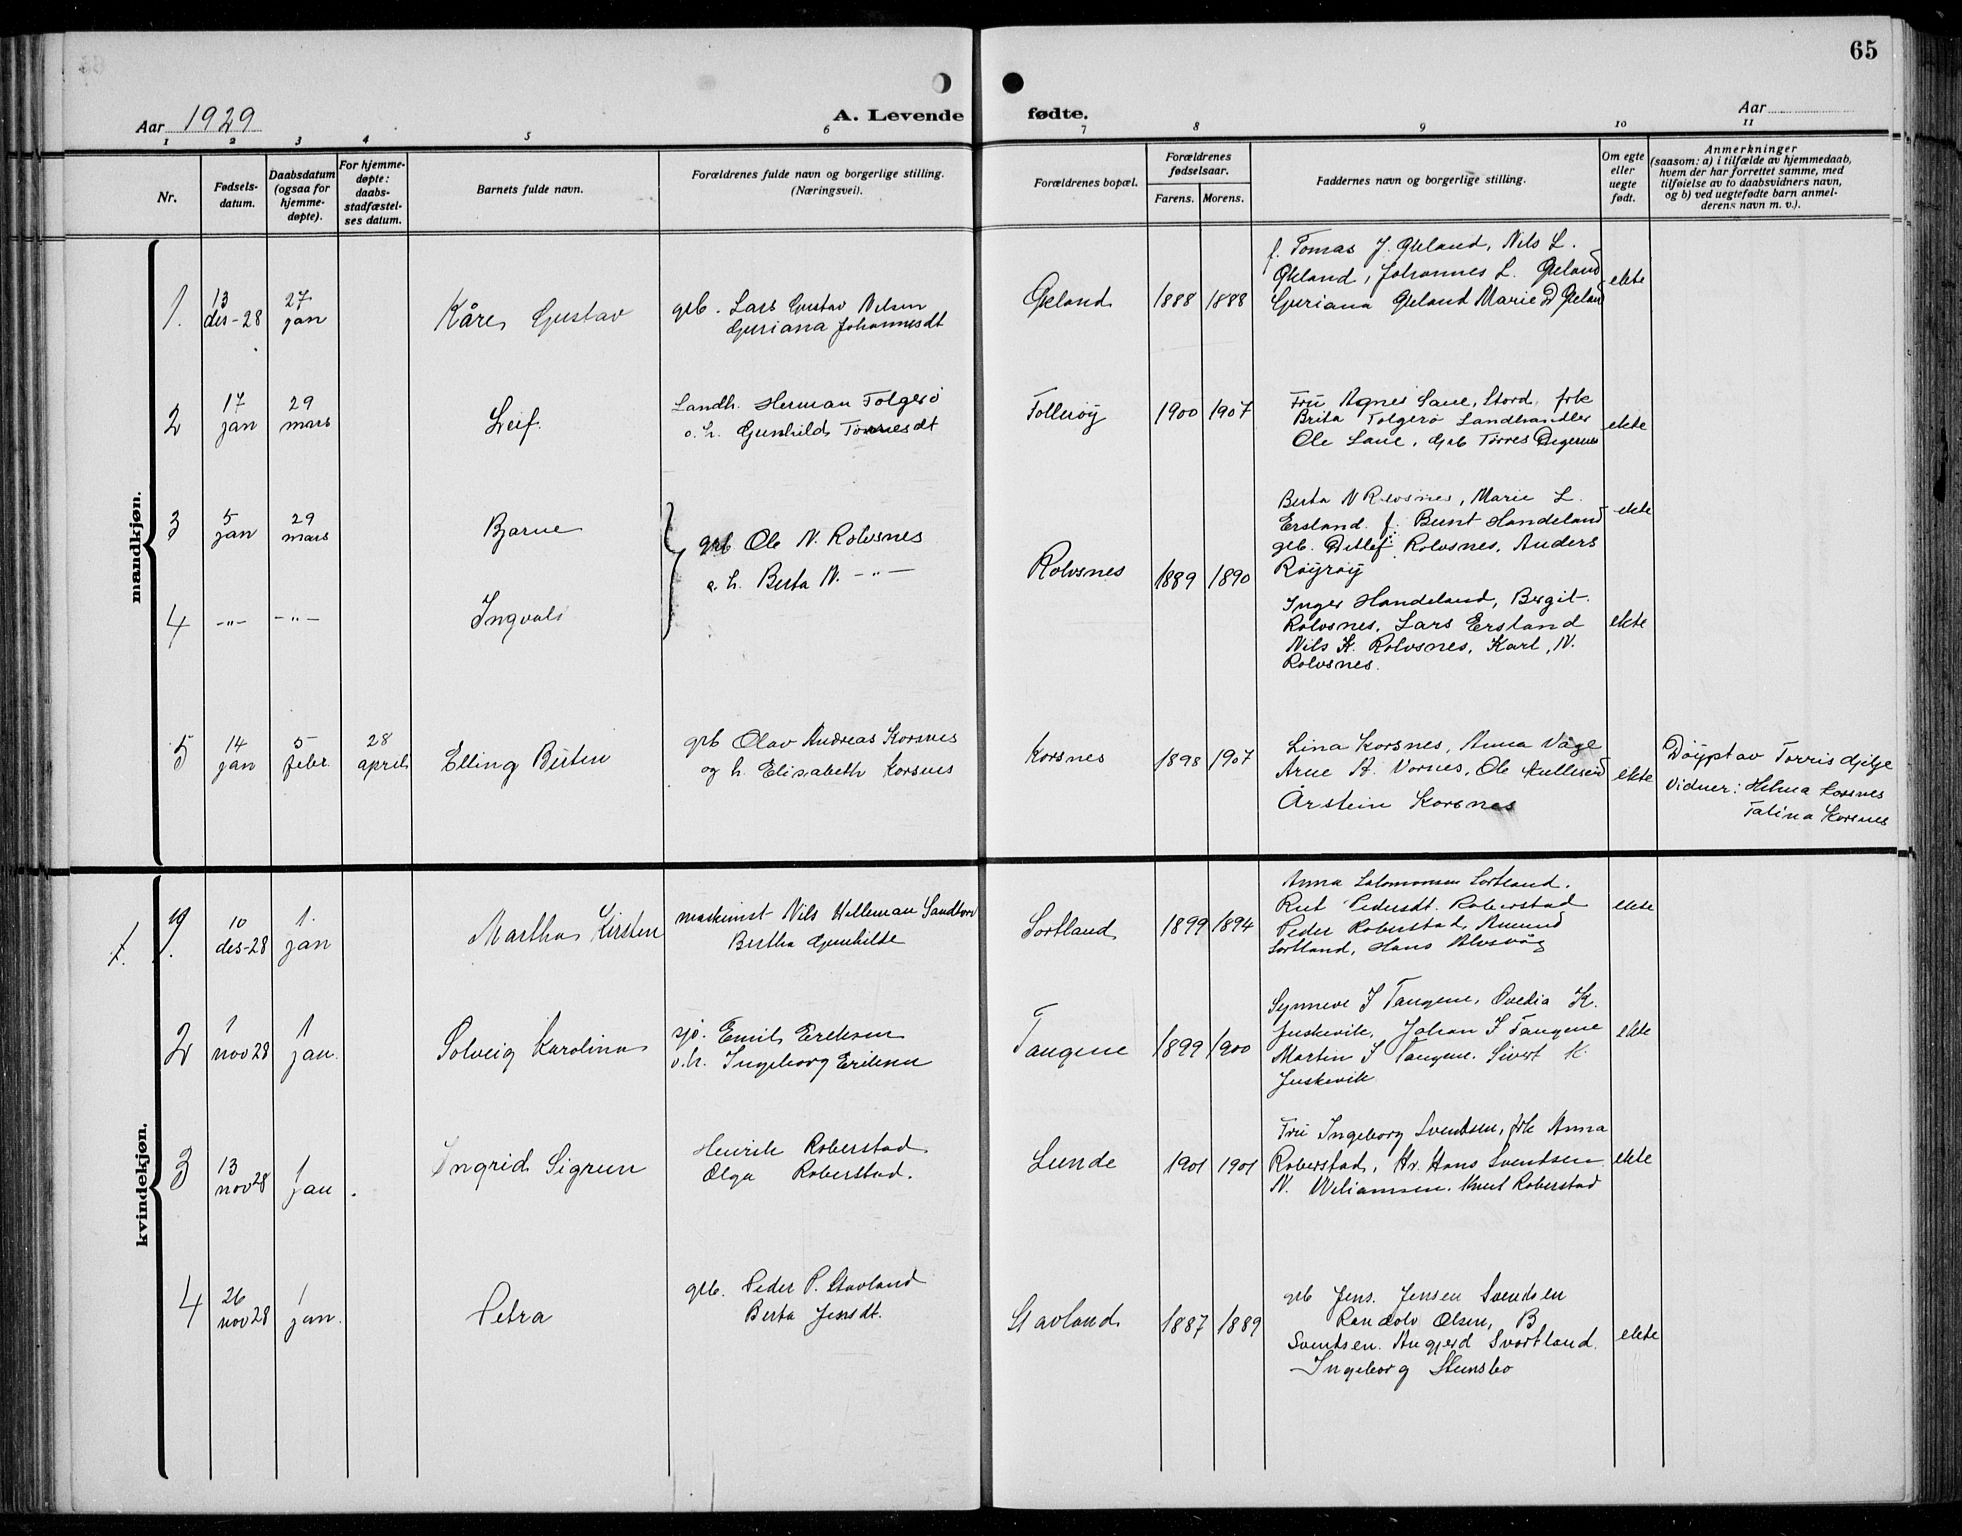 65
Aar 1929
A. Levende fødte.
Aar
1 2 3 4 5 6 7 8 9 10 11
Nr.
Fødsels-
datum.
Daabsdatum
(ogsaa for
hjemme-
døpte).
For hjemme-
døpte:
daabs-
stadfæstel-
ses datum.
Barnets fulde navn.
Forældrenes fulde navn og borgerlige stilling.
(Næringsvei).
Forældrenes bopæl.
Forældrenes
fødselsaar.
Farens. Morens.
Faddernes navn og borgerlige stilling.
Om egte
eller
uegte
født.
Anmerkninger
(saasom: a) i tilfælde av hjemmedaab,
hvem der har forrettet samme, med
tilføielse av to daabsvidners navn,
og b) ved uegtefødte barn anmel-
derens navn m. v.).
mandkjøn.
1. 13 des-28
27 jan
Kåre Gustav
grb. Lars Gustav Nilsen
Guriana Johannesdt
Økland 1888 1888
f. Tomas J. Økland, Nils L.
Økland, Johannes L. Økland
Guriana Økland Marie Økland
ekte
2 17 jan
29 mars
Leif.
Landh. Herman Folgerø
o. h. Gunhild Torresdt
Follerøy 1900 1907
Fru Agnes Laue, Stord, frk
Brita Folgerø Landhandler
Ole Laue, grb Torres
ekte
3 5 jan
29 mars
Bjarne
grb Ole N. Rolvsnes
o. h. Berta N. -"-
Rolvsnes 1889 1890
Berta N Rolvsnes, Marie L.
Ersland. f. Bernt Handeland
grb. Detlef Rolvsnes, Anders
Røyrøy
ekte
4 -"- -"-
Ingvald
Inger Handeland, Bergit
Rolvsnes, Lars Ersland
Nils K. Rolvsnes, Karl, N.
Rolvsnes.
ekte
5 14 jan
5 febr.
28 april
Elling Bertin
grb Olav Andreas Korsnes
og h. Elisabeth Korsnes
Korsnes 1898 1907
Lina Korsnes, Anna Våge
Arne A. Vornes, Ole
Årstein Korsnes
ekte
Døypt av Torris
Vidner: Helma Korsnes
Talina Korsnes
kvindekjøn.
1. 10 des-28
1. jan
Martha Kirsten
maskinist Nils Helleman
Bertha Gunhilde
Sortland 1899 1894
Anna Salomonsen Sortland.
Rut Pedersdt. Roberstad
Peder Roberstad, Amund
Sortland, Hans Alvsvåg
ekte
2 1 nov 28
1 jan.
Solveig Karolina
sjø. Emil Eriksen
o. h. Ingeborg Eriksen
Tangene 1899 1900
Synneve I Tangene, Ovedia K.
Juskevik, Johan I Tangene
Martin I Tangene. Sivert K.
Juskevik
ekte
3 13 nov 28
1 jan.
Ingrid Sigrun
Henrik Roberstad
Olga Roberstad.
Lunde 1901 1901
Fru Ingeborg Svendsen, frk Anna
Roberstad, Hr. Hans Svendsen
N. Wiliamsen. Knut Roberstad
ekte
4 26 nov 28
1 jan.
Petra
grb. Peder P. Stavland
Berta Jensdt.
Stavland 1887 1889
grb Jens. Jensen Svendsen
Randolv Olsen, B
Svendsen. Angjerd Svortland.
Ingeborg Stensbo
ekte